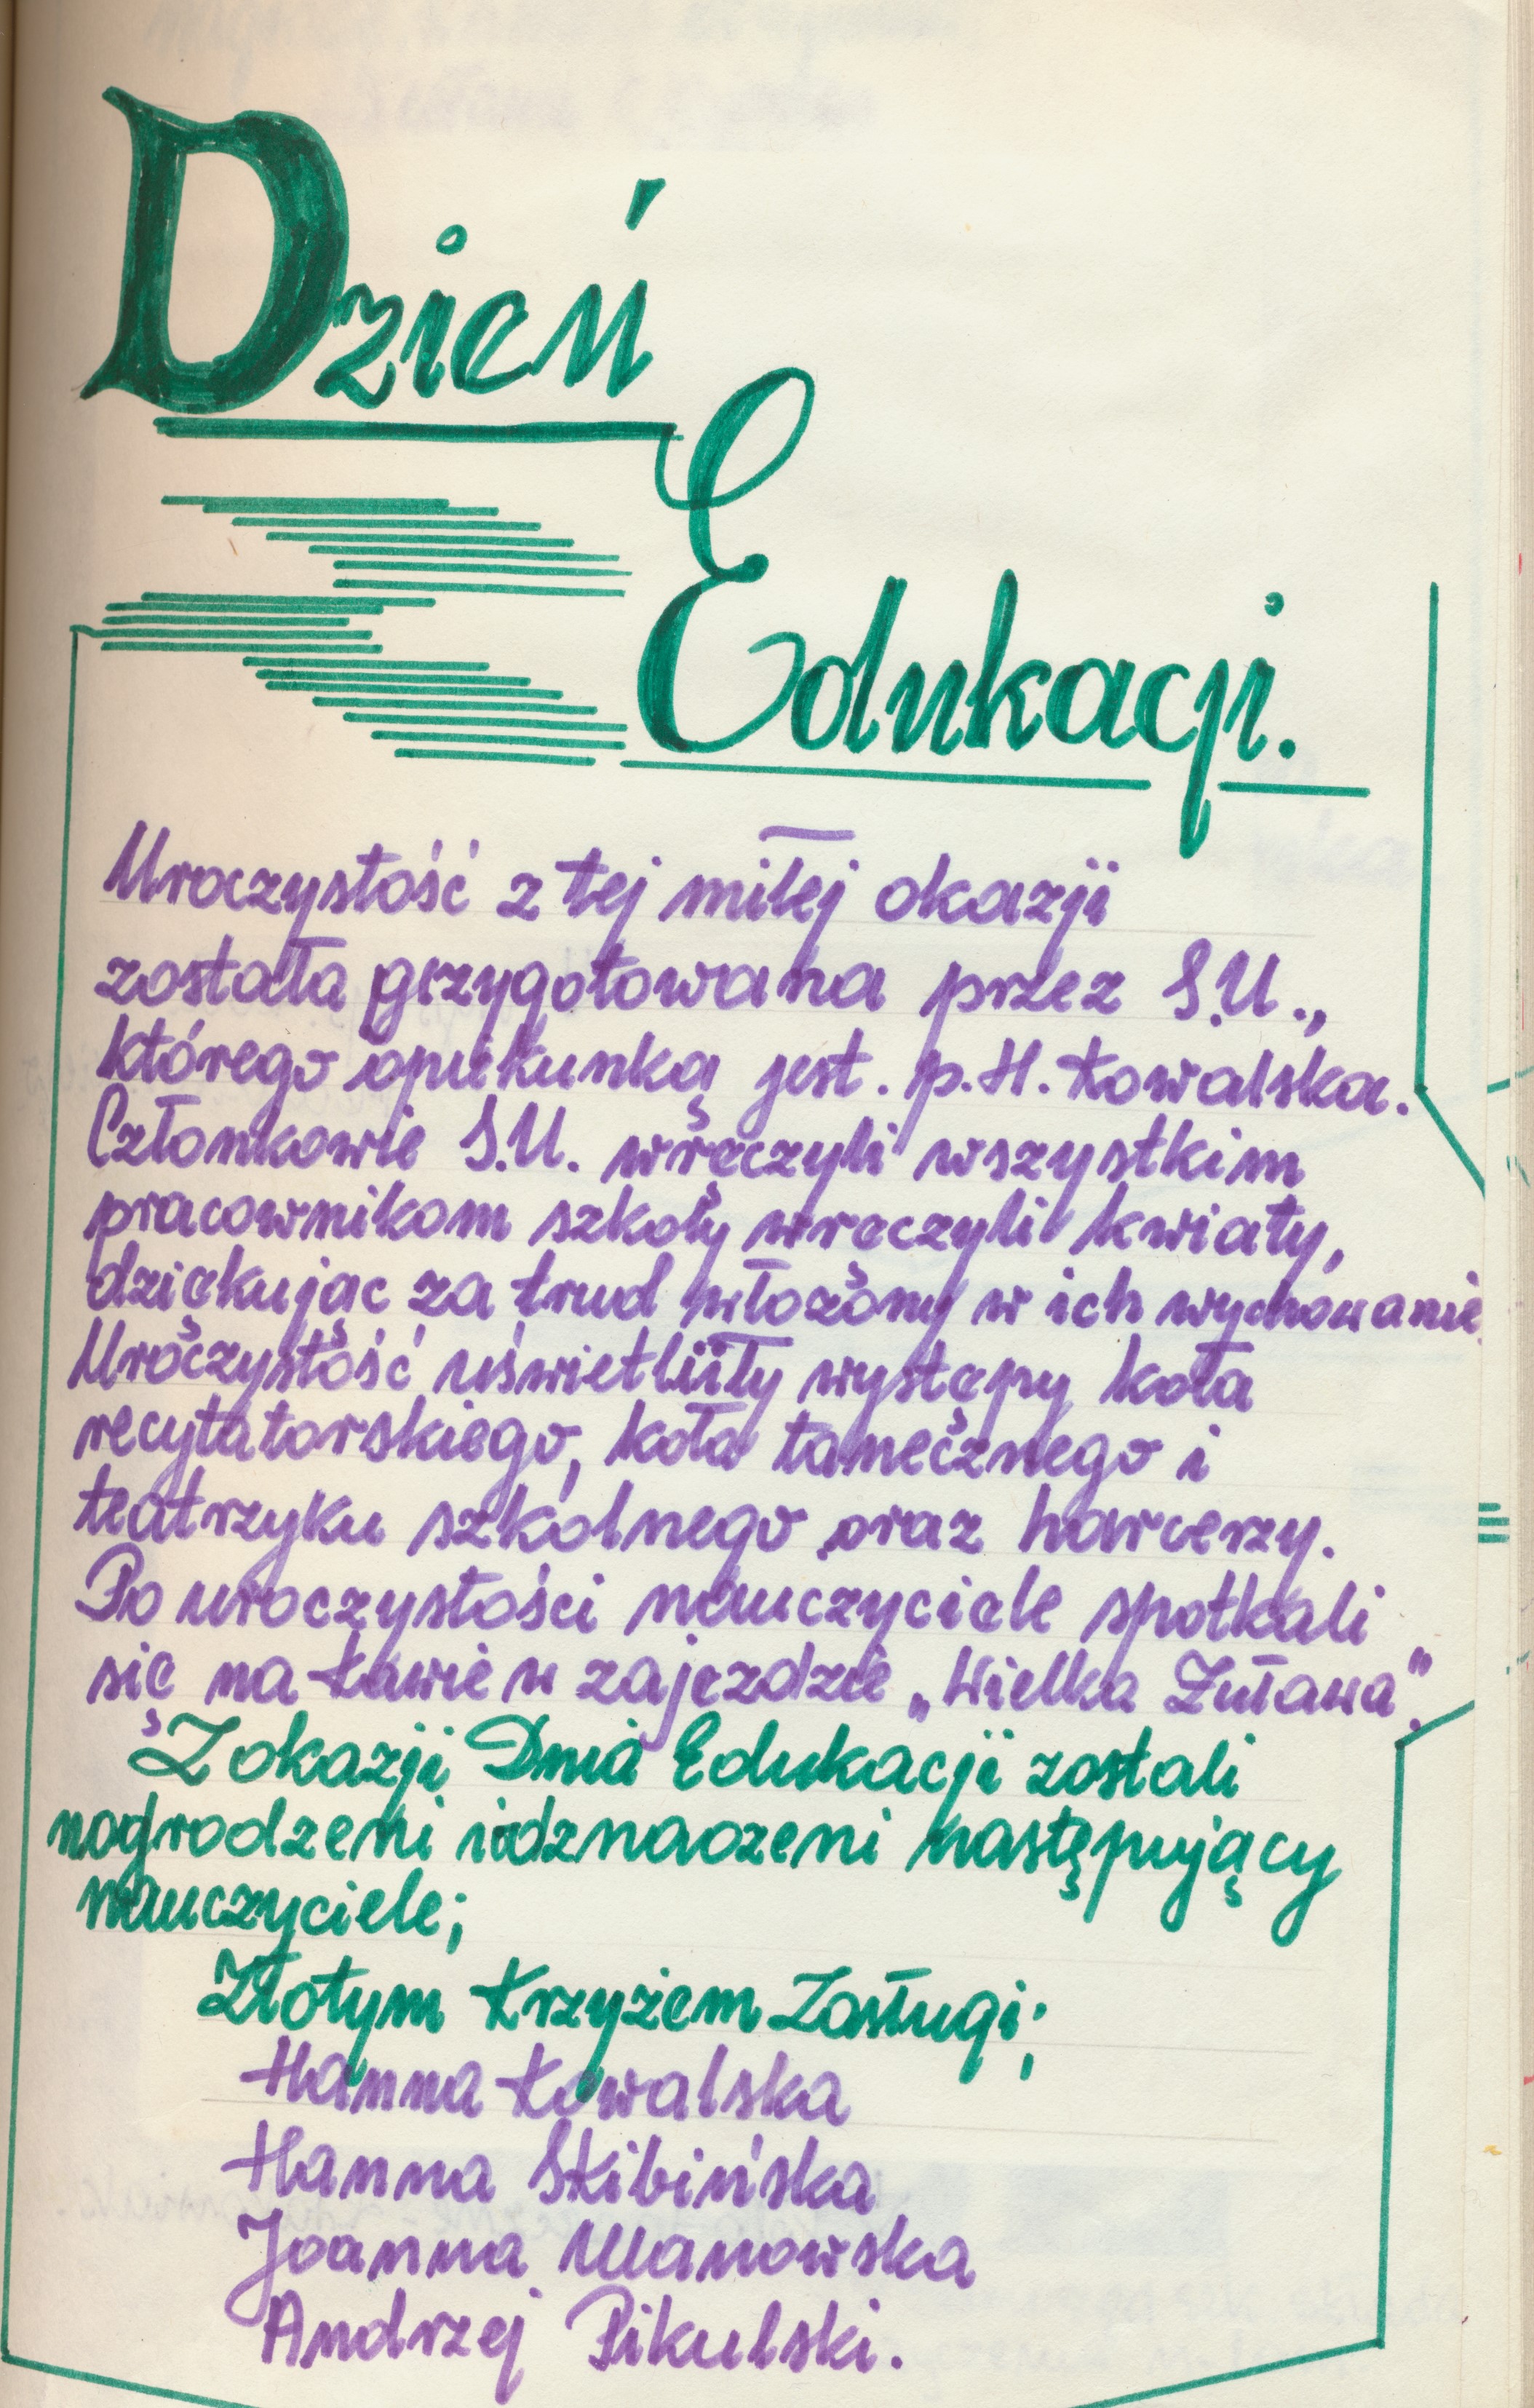 Dzień
Edukacji.
Uroczystość z tej miłej okazji
została przygotowana przez S.U.,
którego opiekunką jest. p. H. Kowalska.
Członkowie S.U. wręczyli wszystkim
pracownikom szkoły wręczyli kwiaty,
dziękując za trud włożony w ich wychowanie.
Uroczystość uświetliły występy koła
recytatorskiego, koła tanecznego i
teatrzyku szkolnego oraz harcerzy.
Po uroczystości nauczyciele spotkali
się na kawie w zajeździe „Wielka Żuława”.
Z okazji Dnia Edukacji zostali
nagrodzeni i odznaczeni następujący
nauczyciele;
Złotym Krzyżem Zasługi;
Hanna Kowalska
Hanna Skibińska
Joanna Ulanowska
Andrzej Pikulski.